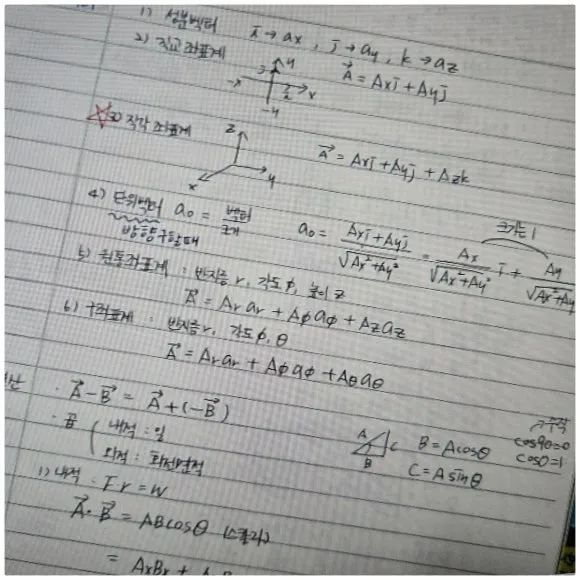 1) 성분벡터 i→ax, j→ay, k→az
2) 직교좌표계 A = Axi + Ayj
y
3
-x 2 x
-y
☆3) 직각좌표계 A = Axi + Ayj + Azk
z
x y
4) 단위벡터 a₀ = 벡터/크기 a₀ = (Axi + Ayj)/√(Ax²+Ay²) = Ax/√(Ax²+Ay²) i + Ay/√(Ax²+Ay²)
크기는 1
방향구할때
5) 원통좌표계 : 반지름 r, 각도 ϕ, 높이 z
A = Ar ar + Aϕ aϕ + Az az
6) 구좌표계 : 반지름 r, 각도 ϕ, θ
A = Ar ar + Aϕ aϕ + Aθ aθ
A - B = A + (-B)
· 곱 내적 : 일
외적 : 회전면적
A C B
B = Acosθ
C = Asinθ
→수직
cos90=0
cos0=1
1) 내적 : F·r = W
A · B = ABcosθ (스칼라)
= AxBx +